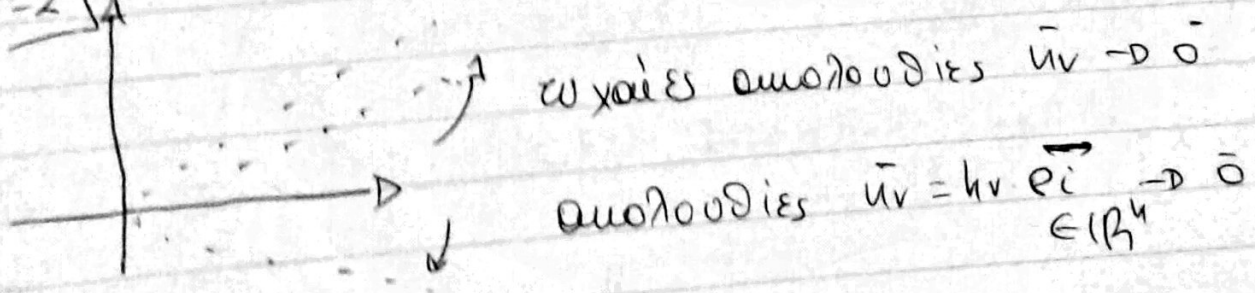 τυχαίες ακολουθίες ūν → ō
ακολουθίες ūν = hν e⃗i → ō
∈ ℝⁿ